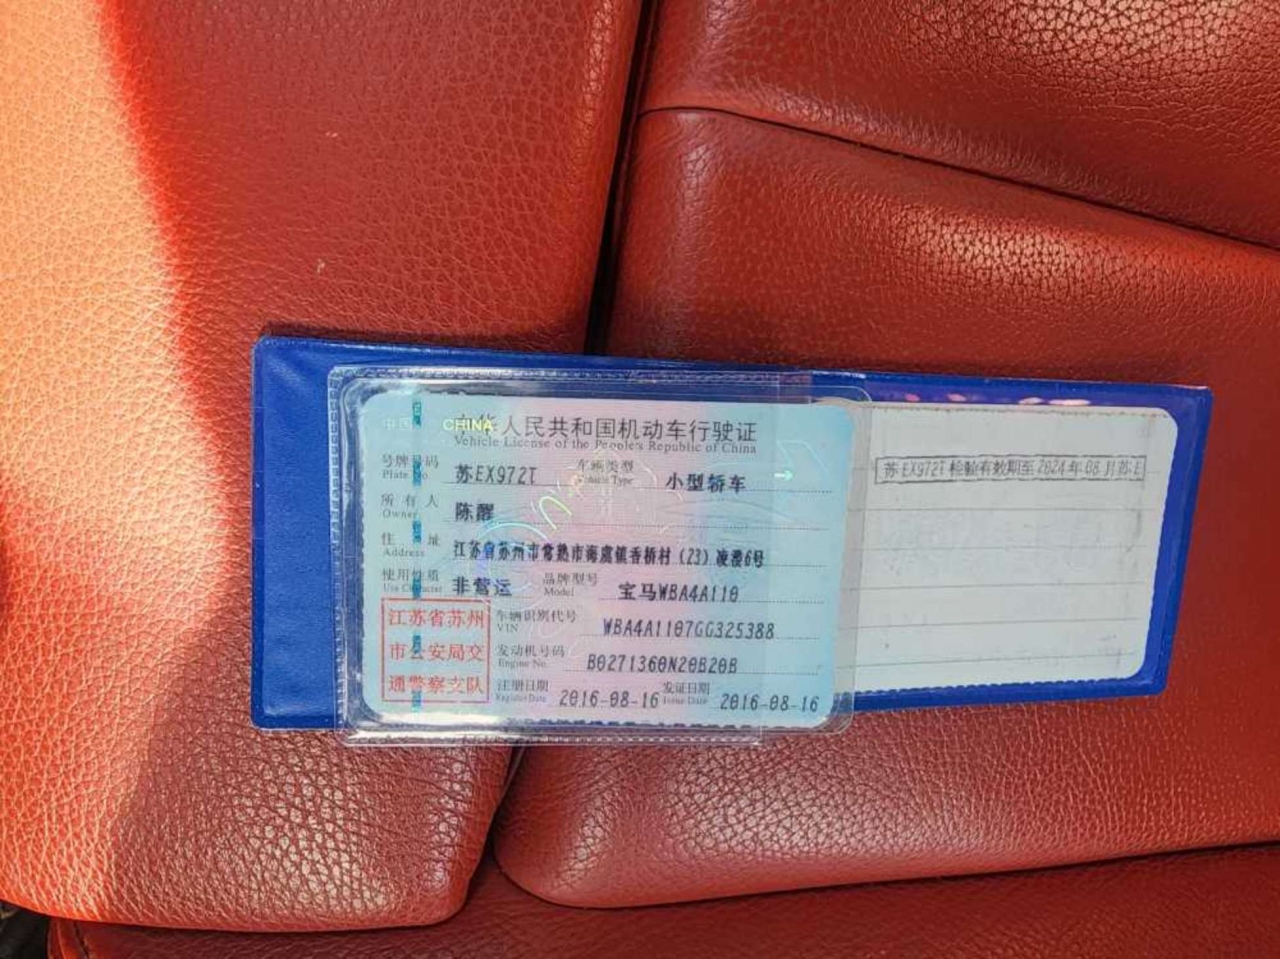 中国 CHINA
中华人民共和国机动车行驶证
Vehicle License of the People's Republic of China
号牌号码 苏EX972T 车辆类型 小型轿车
Plate No Vehicle Type
所有人 陈醒
Owner
住址 江苏省苏州市常熟市海虞镇香桥村(23)凌溇6号
Address
使用性质 非营运 品牌型号 宝马WBA4A110
Use Character Model
江苏省苏州
市公安局交
通警察支队
车辆识别代号 WBA4A1107GG325388
VIN
发动机号码 B0271360N20B20B
Engine No.
注册日期 2016-08-16 发证日期 2016-08-16
Register Date Issue Date
苏EX972T 检验有效期至2024年08月苏E